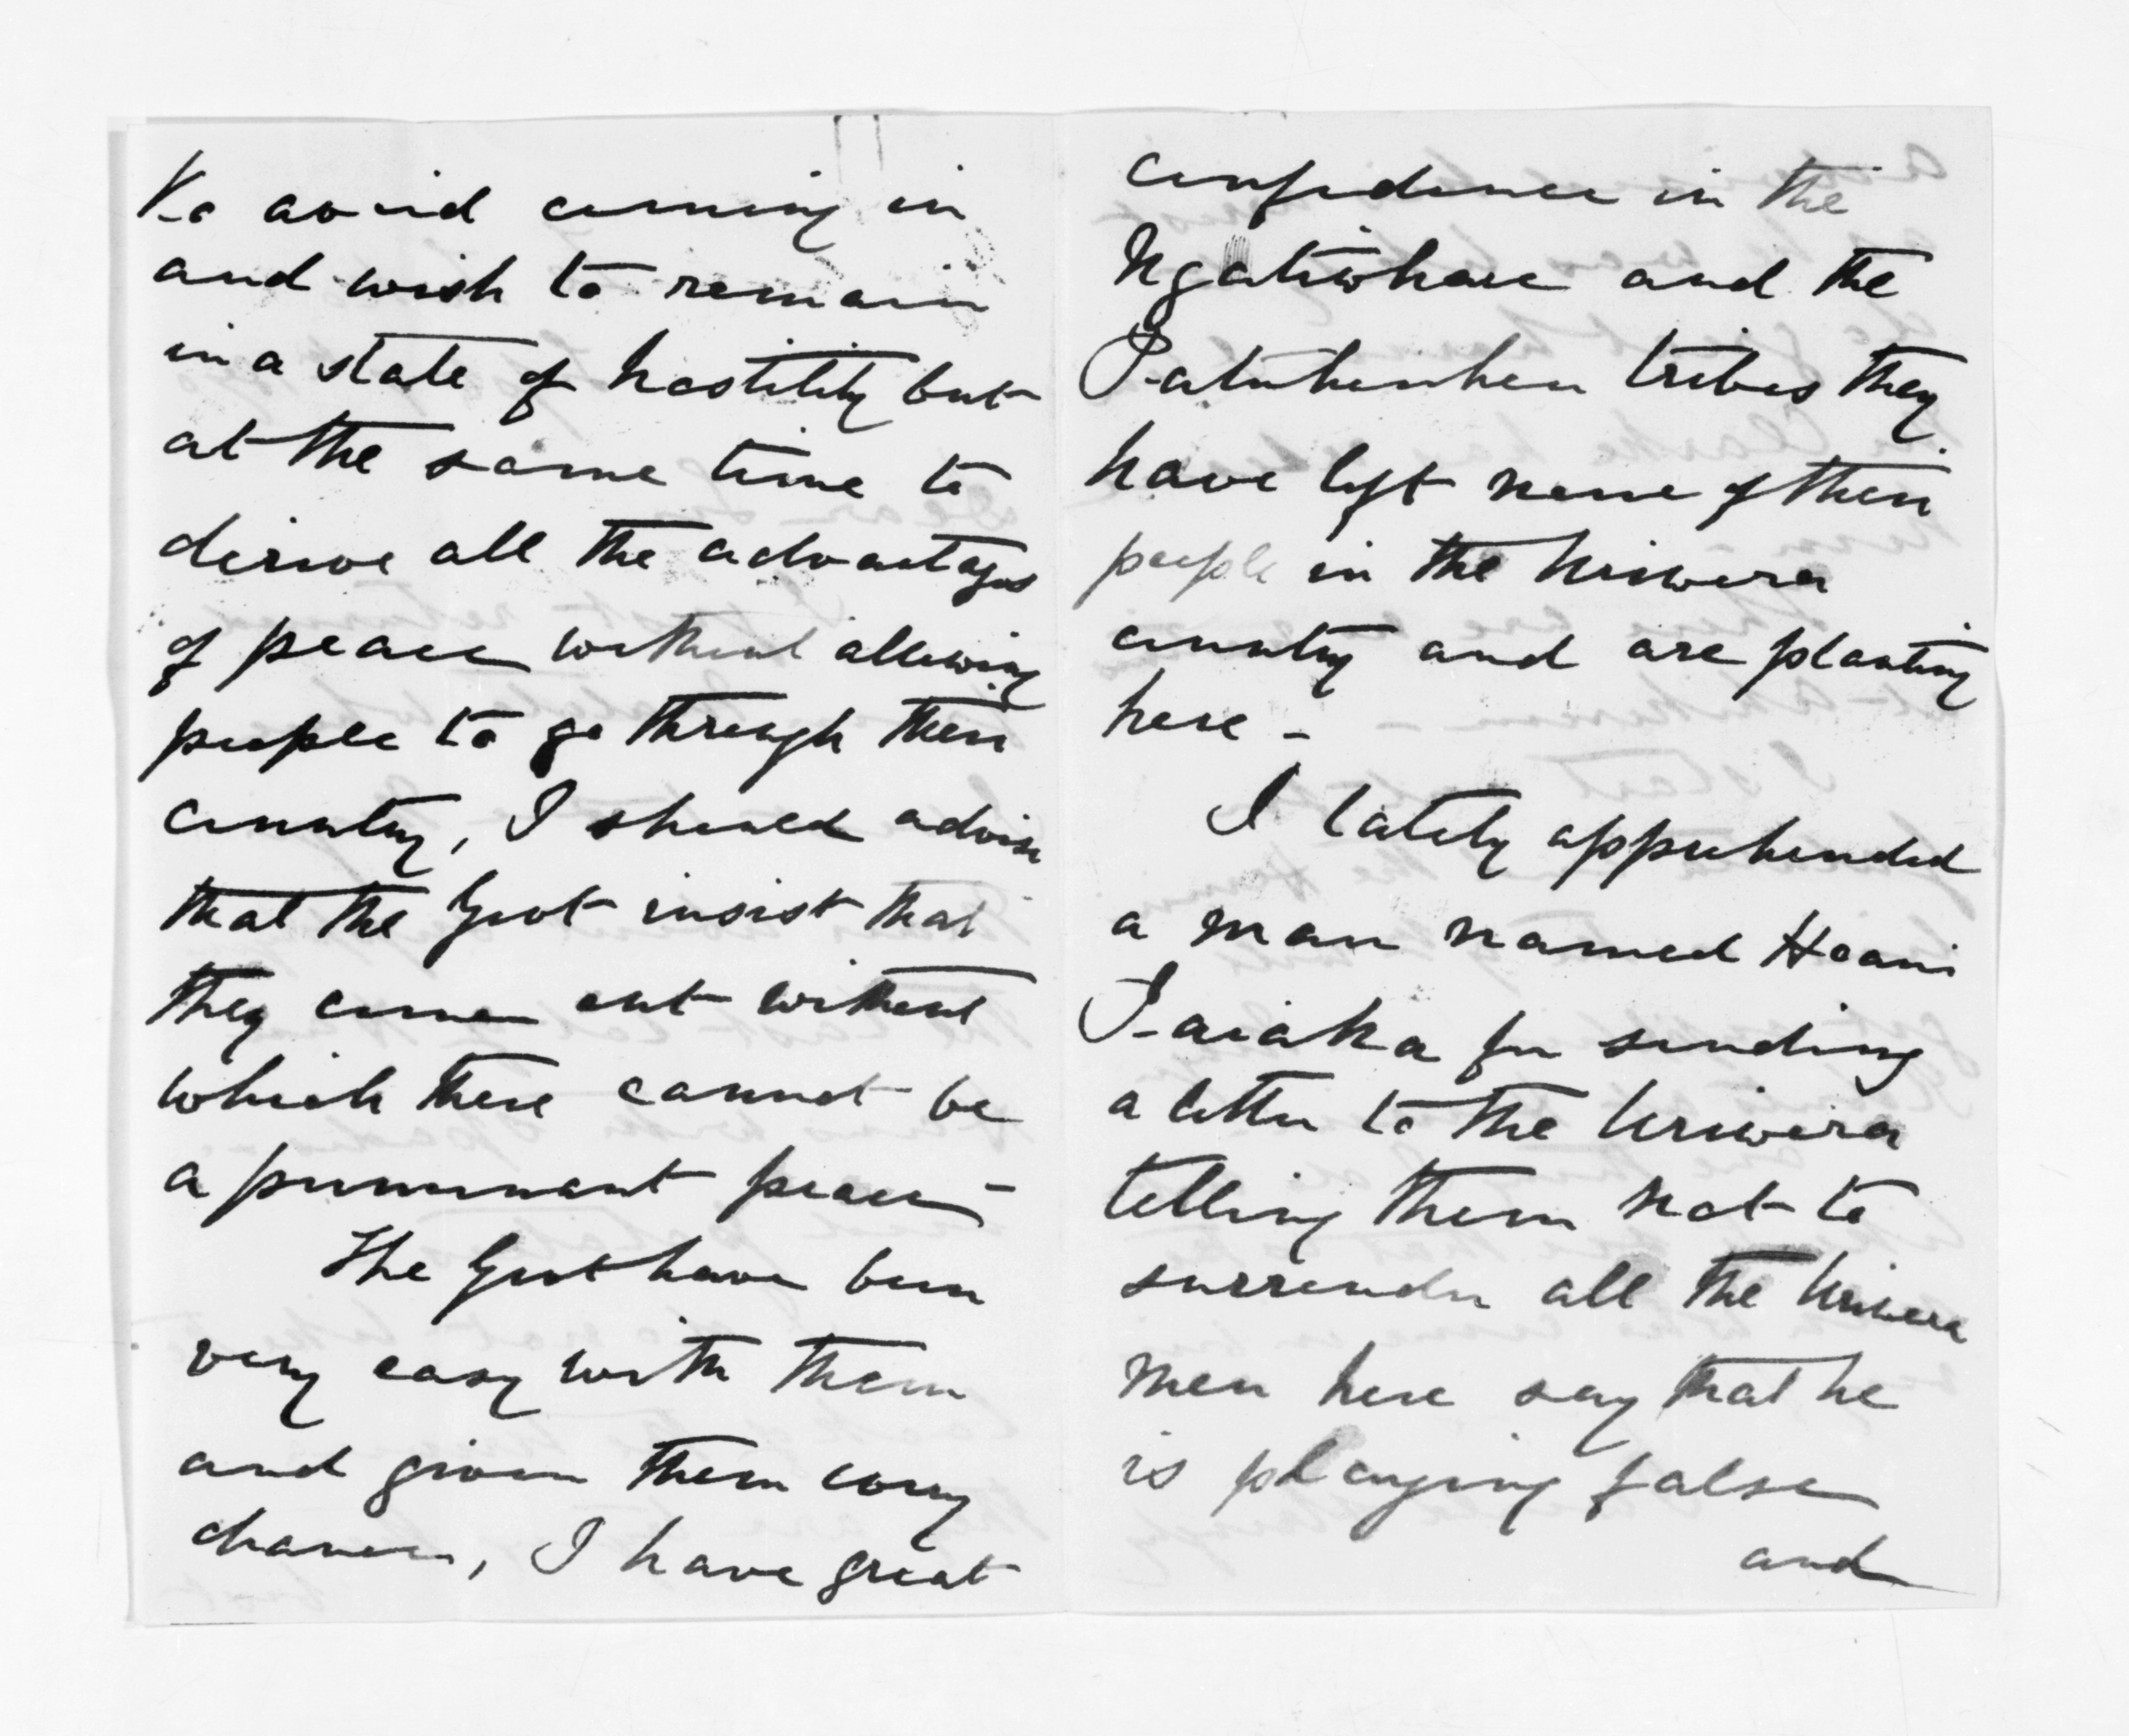 to avoid coming in
and wish to remain
in a state of hostility but
at the same time to
derive all the advantages
of peace without allowing
people to go through their
country, I should advise
that the Govt insist that
they come out without
which there cannot be
a permanent peace -
The Govt have been
very easy with them
and given them every
chance, I have great
confidence in the
Ngatiwhare and the
Patuheuheu tribes they
have left none of their
people in the Uriwera
country and are planting
here -
I lately apprehended
a man named Hoani
Taiaka for sending
a letter to the Uriwera
telling them not to
surrender all the Uriwera
men here say that he
is playing false
and